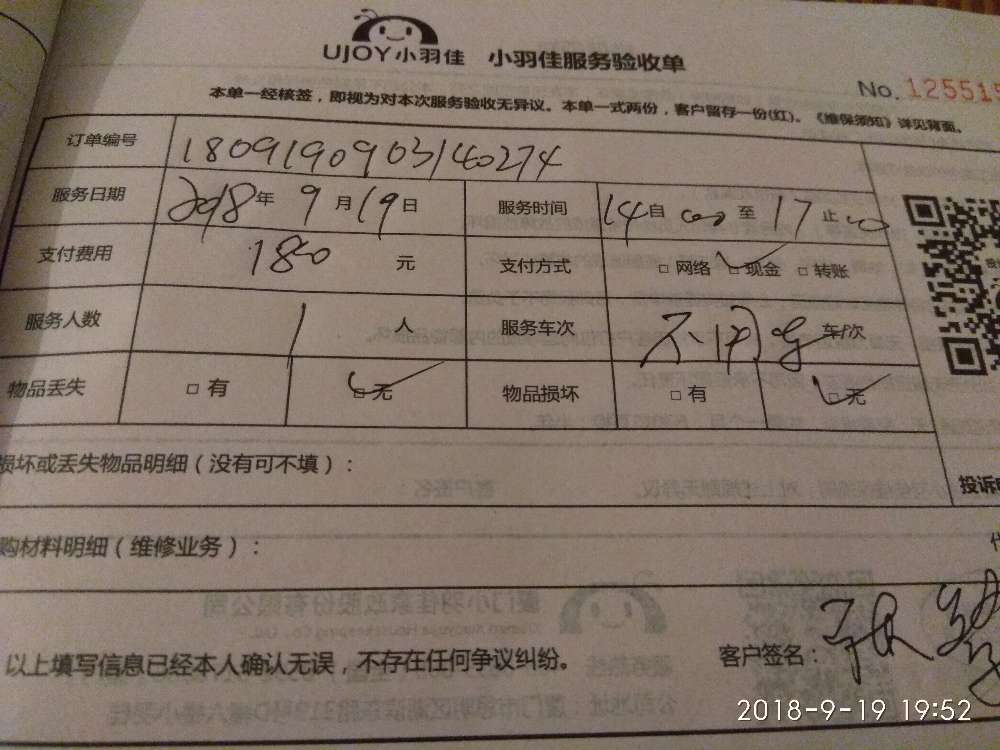 UJOY小羽佳 小羽佳服务验收单
No.125515
本单一经核签，即视为对本次服务验收无异议。本单一式两份，客户留存一份(红)。《维保须知》详见背面。
订单编号 1809190903140274
服务日期 2018年 9月19日 服务时间 14自00至17止00
支付费用 180 元 支付方式 □网络 □现金 □转账
服务人数 1 人 服务车次 车/次
物品丢失 □有 □无 物品损坏 □有 □无
损坏或丢失物品明细（没有可不填）：
投诉
购材料明细（维修业务）：
以上填写信息已经本人确认无误，不存在任何争议纠纷。 客户签名：张
2018-9-19 19:52